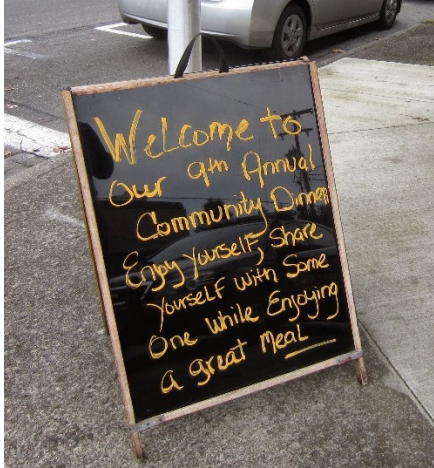 Welcome to
our 9th Annual
Community Dinner
Enjoy yourself, Share
yourself with Some
One while Enjoying
a great Meal